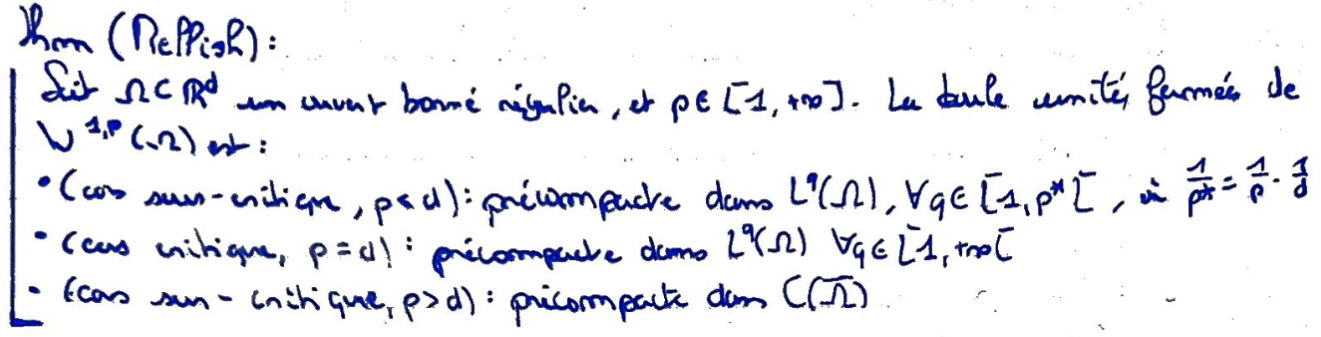 Thm (Rellich):
Soit Ω⊂ℝᵈ un ouvert borné régulier, et p∈[1,+∞]. La boule unité fermée de
W^{1,p}(Ω) est:
• (cas sous-critique, p<d): précompacte dans L^q(Ω), ∀q∈[1,p*[, où 1/p* = 1/p - 1/d
• (cas critique, p=d): précompacte dans L^q(Ω) ∀q∈[1,+∞[
• (cas sur-critique, p>d): précompacte dans C(Ω̄)